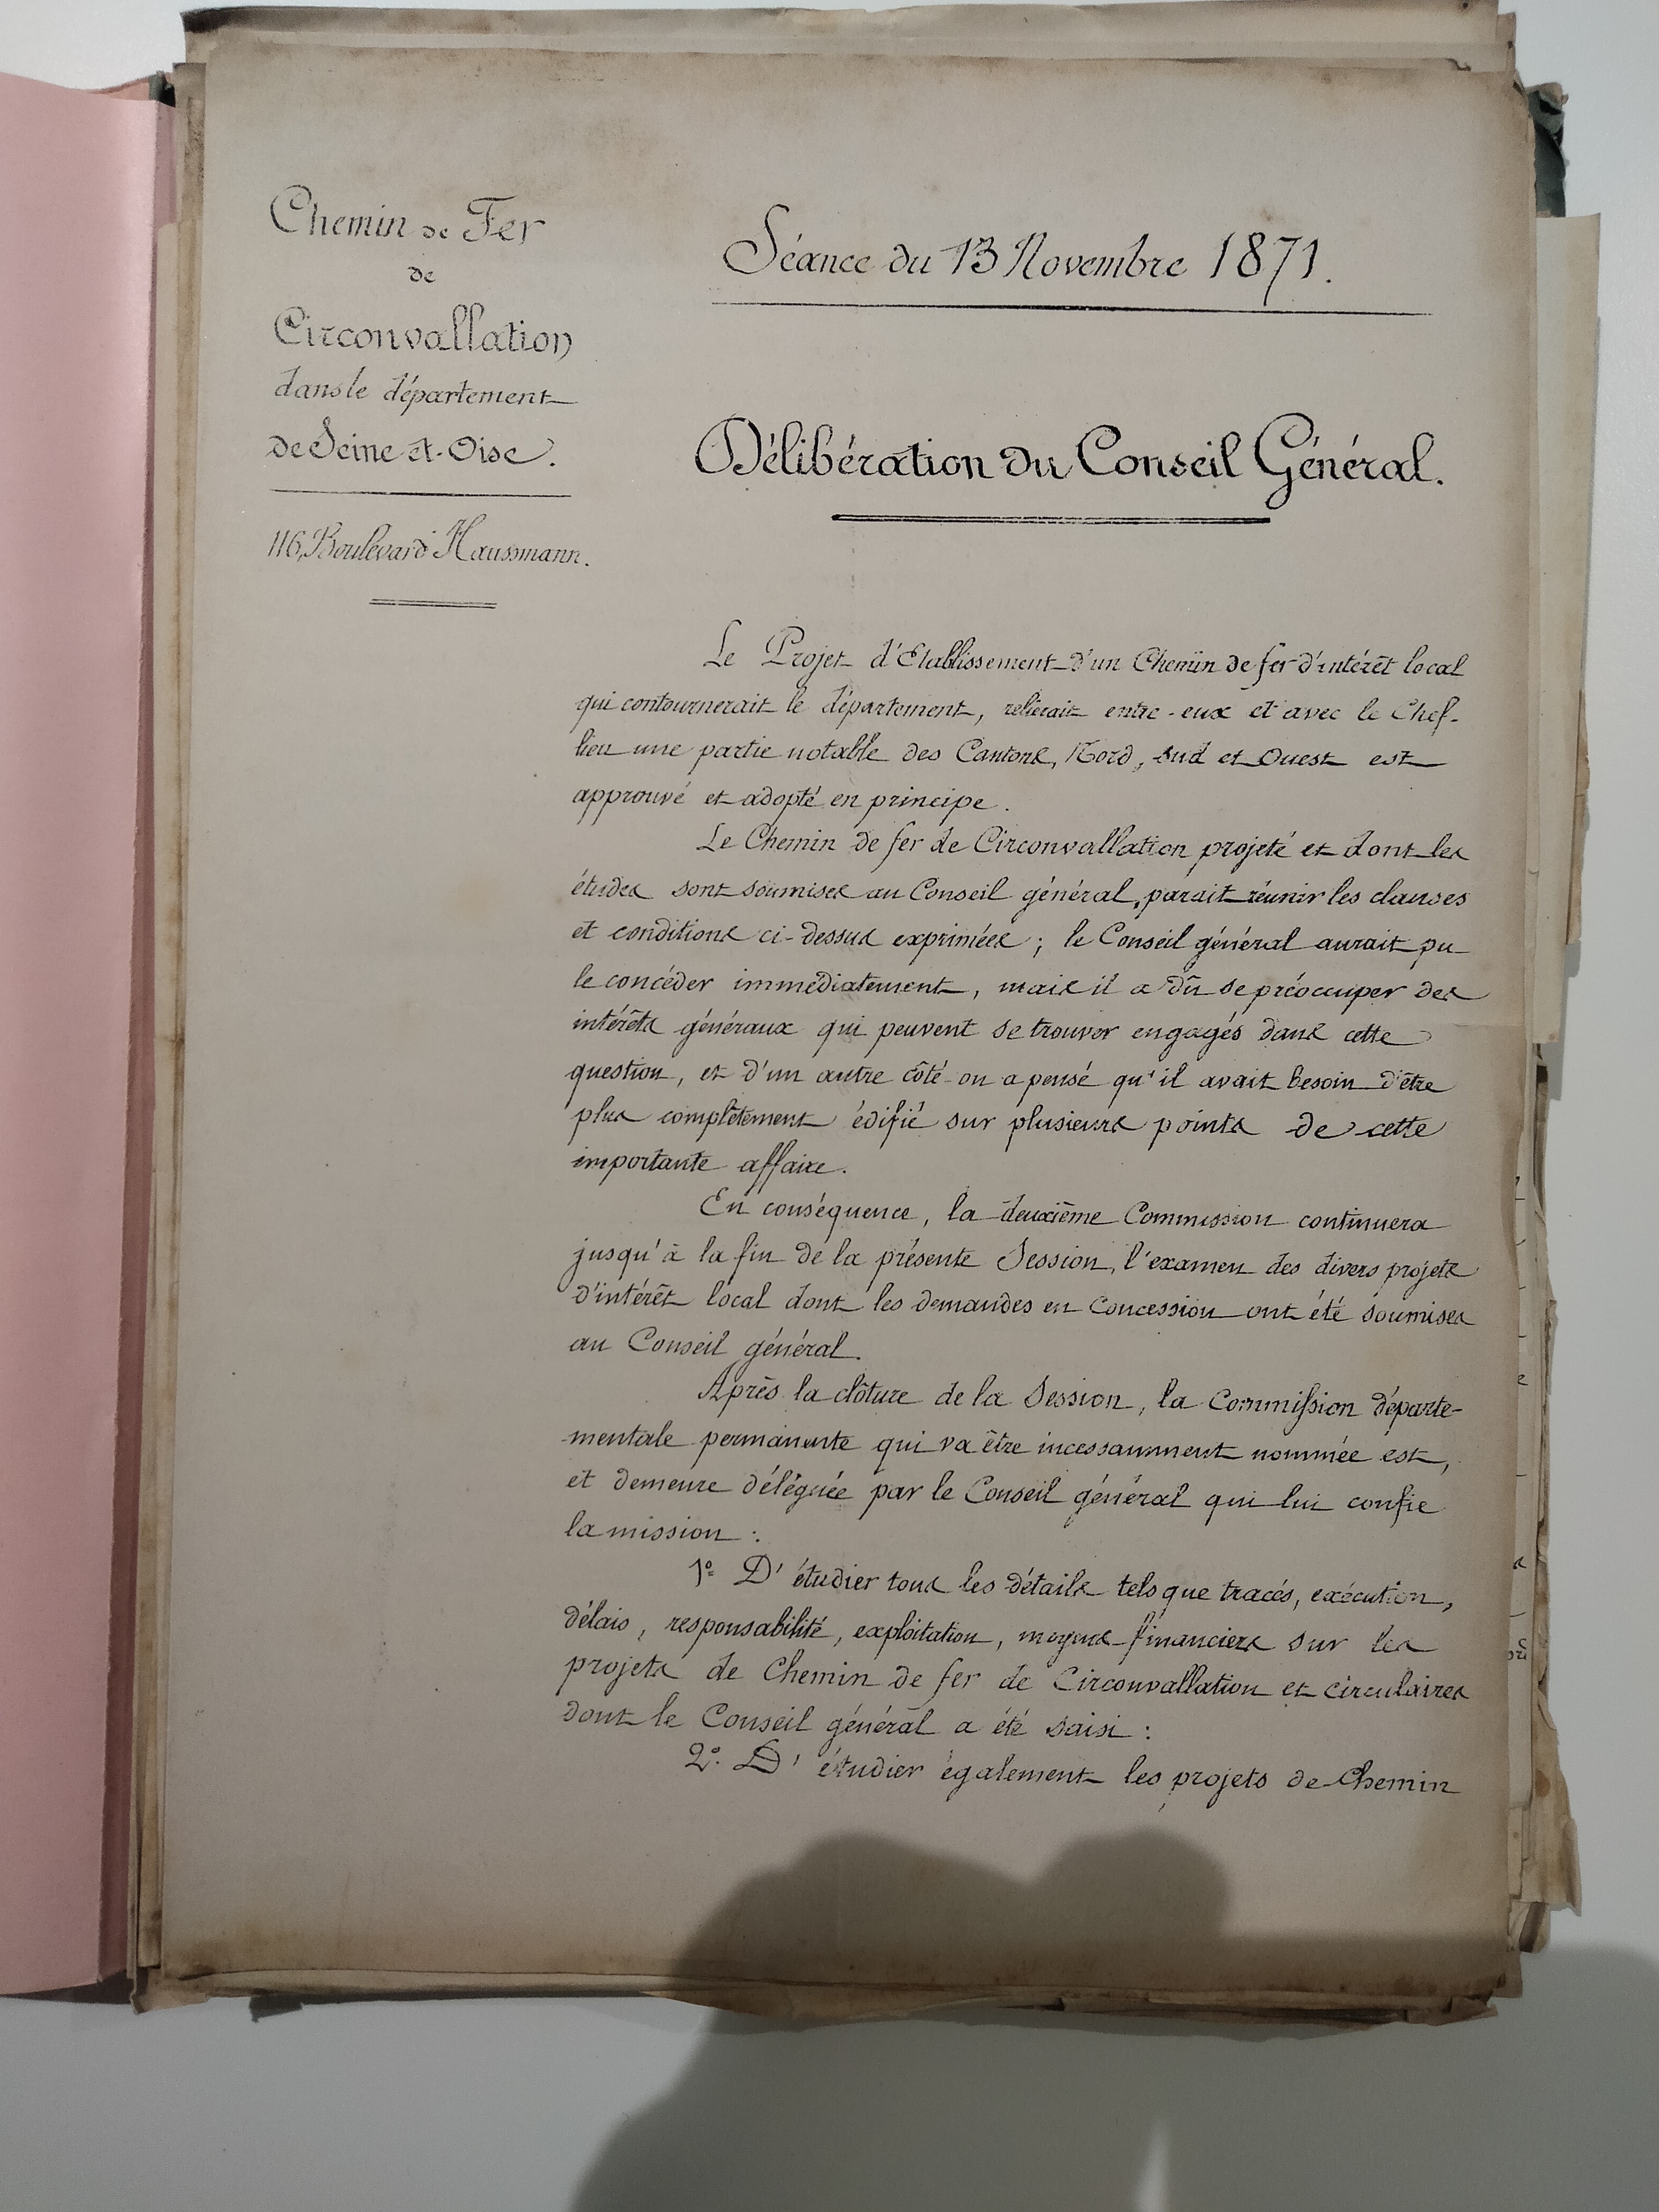 Chemin de Fer
de
Circonvallation
dans le département
de Seine-et-Oise.
116, Boulevard Haussmann.
Séance du 13 Novembre 1871.
Délibération du Conseil Général.
Le Projet d'Etablissement d'un Chemin de fer d'intérêt local
qui contournerait le département, relierait entre-eux et avec le Chef-
lieu une partie notable des Cantons, Nord, Sud et Ouest est
approuvé et adopté en principe.
Le Chemin de fer de Circonvallation projeté et dont les
études sont soumises au Conseil général, parait réunir les clauses
et conditions ci-dessus exprimées ; le Conseil général aurait pu
le concéder immédiatement, mais il a dû se préoccuper des
intérêts généraux qui peuvent se trouver engagés dans cette
question, et d'un autre côté on a pensé qu'il avait besoin d'être
plus complètement édifié sur plusieurs points de cette
importante affaire.
En conséquence, la deuxième Commission continuera
jusqu'à la fin de la présente Session, l'examen des divers projets
d'intérêt local dont les demandes en Concession ont été soumises
au Conseil général.
Après la clôture de la Session, la Commission départe-
mentale permanente qui va être incessamment nommée est,
et demeure déléguée par le Conseil général qui lui confie
la mission :
1° D'étudier tous les détails tels que tracés, exécution,
délais, responsabilité, exploitation, moyens financiers sur les
projets de Chemin de fer de Circonvallation et circulaires
dont le Conseil général a été saisi :
2° D'étudier également les projets de Chemin